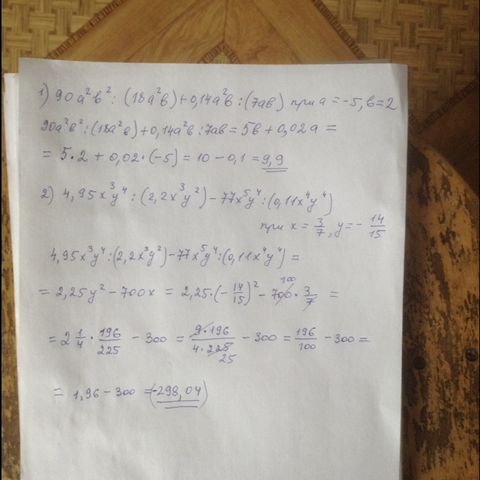 1) 90a²b² : (18a²b) + 0,14a²b : (7ab) при a = -5, b = 2
90a²b² : (18a²b) + 0,14a²b : 7ab = 5b + 0,02a =
= 5·2 + 0,02·(-5) = 10 - 0,1 = 9,9
2) 4,95x³y⁴ : (2,2x³y²) - 77x⁵y⁴ : (0,11x⁴y⁴)
при x = 3/7, y = -14/15
4,95x³y⁴ : (2,2x³y²) - 77x⁵y⁴ : (0,11x⁴y⁴) =
= 2,25y² - 700x = 2,25·(-14/15)² - 700 100 · 3/7 =
= 2 1/4 · 196/225 - 300 = 9·196/4·225 25 - 300 = 196/100 - 300 =
= 1,96 - 300 = (-298,04)